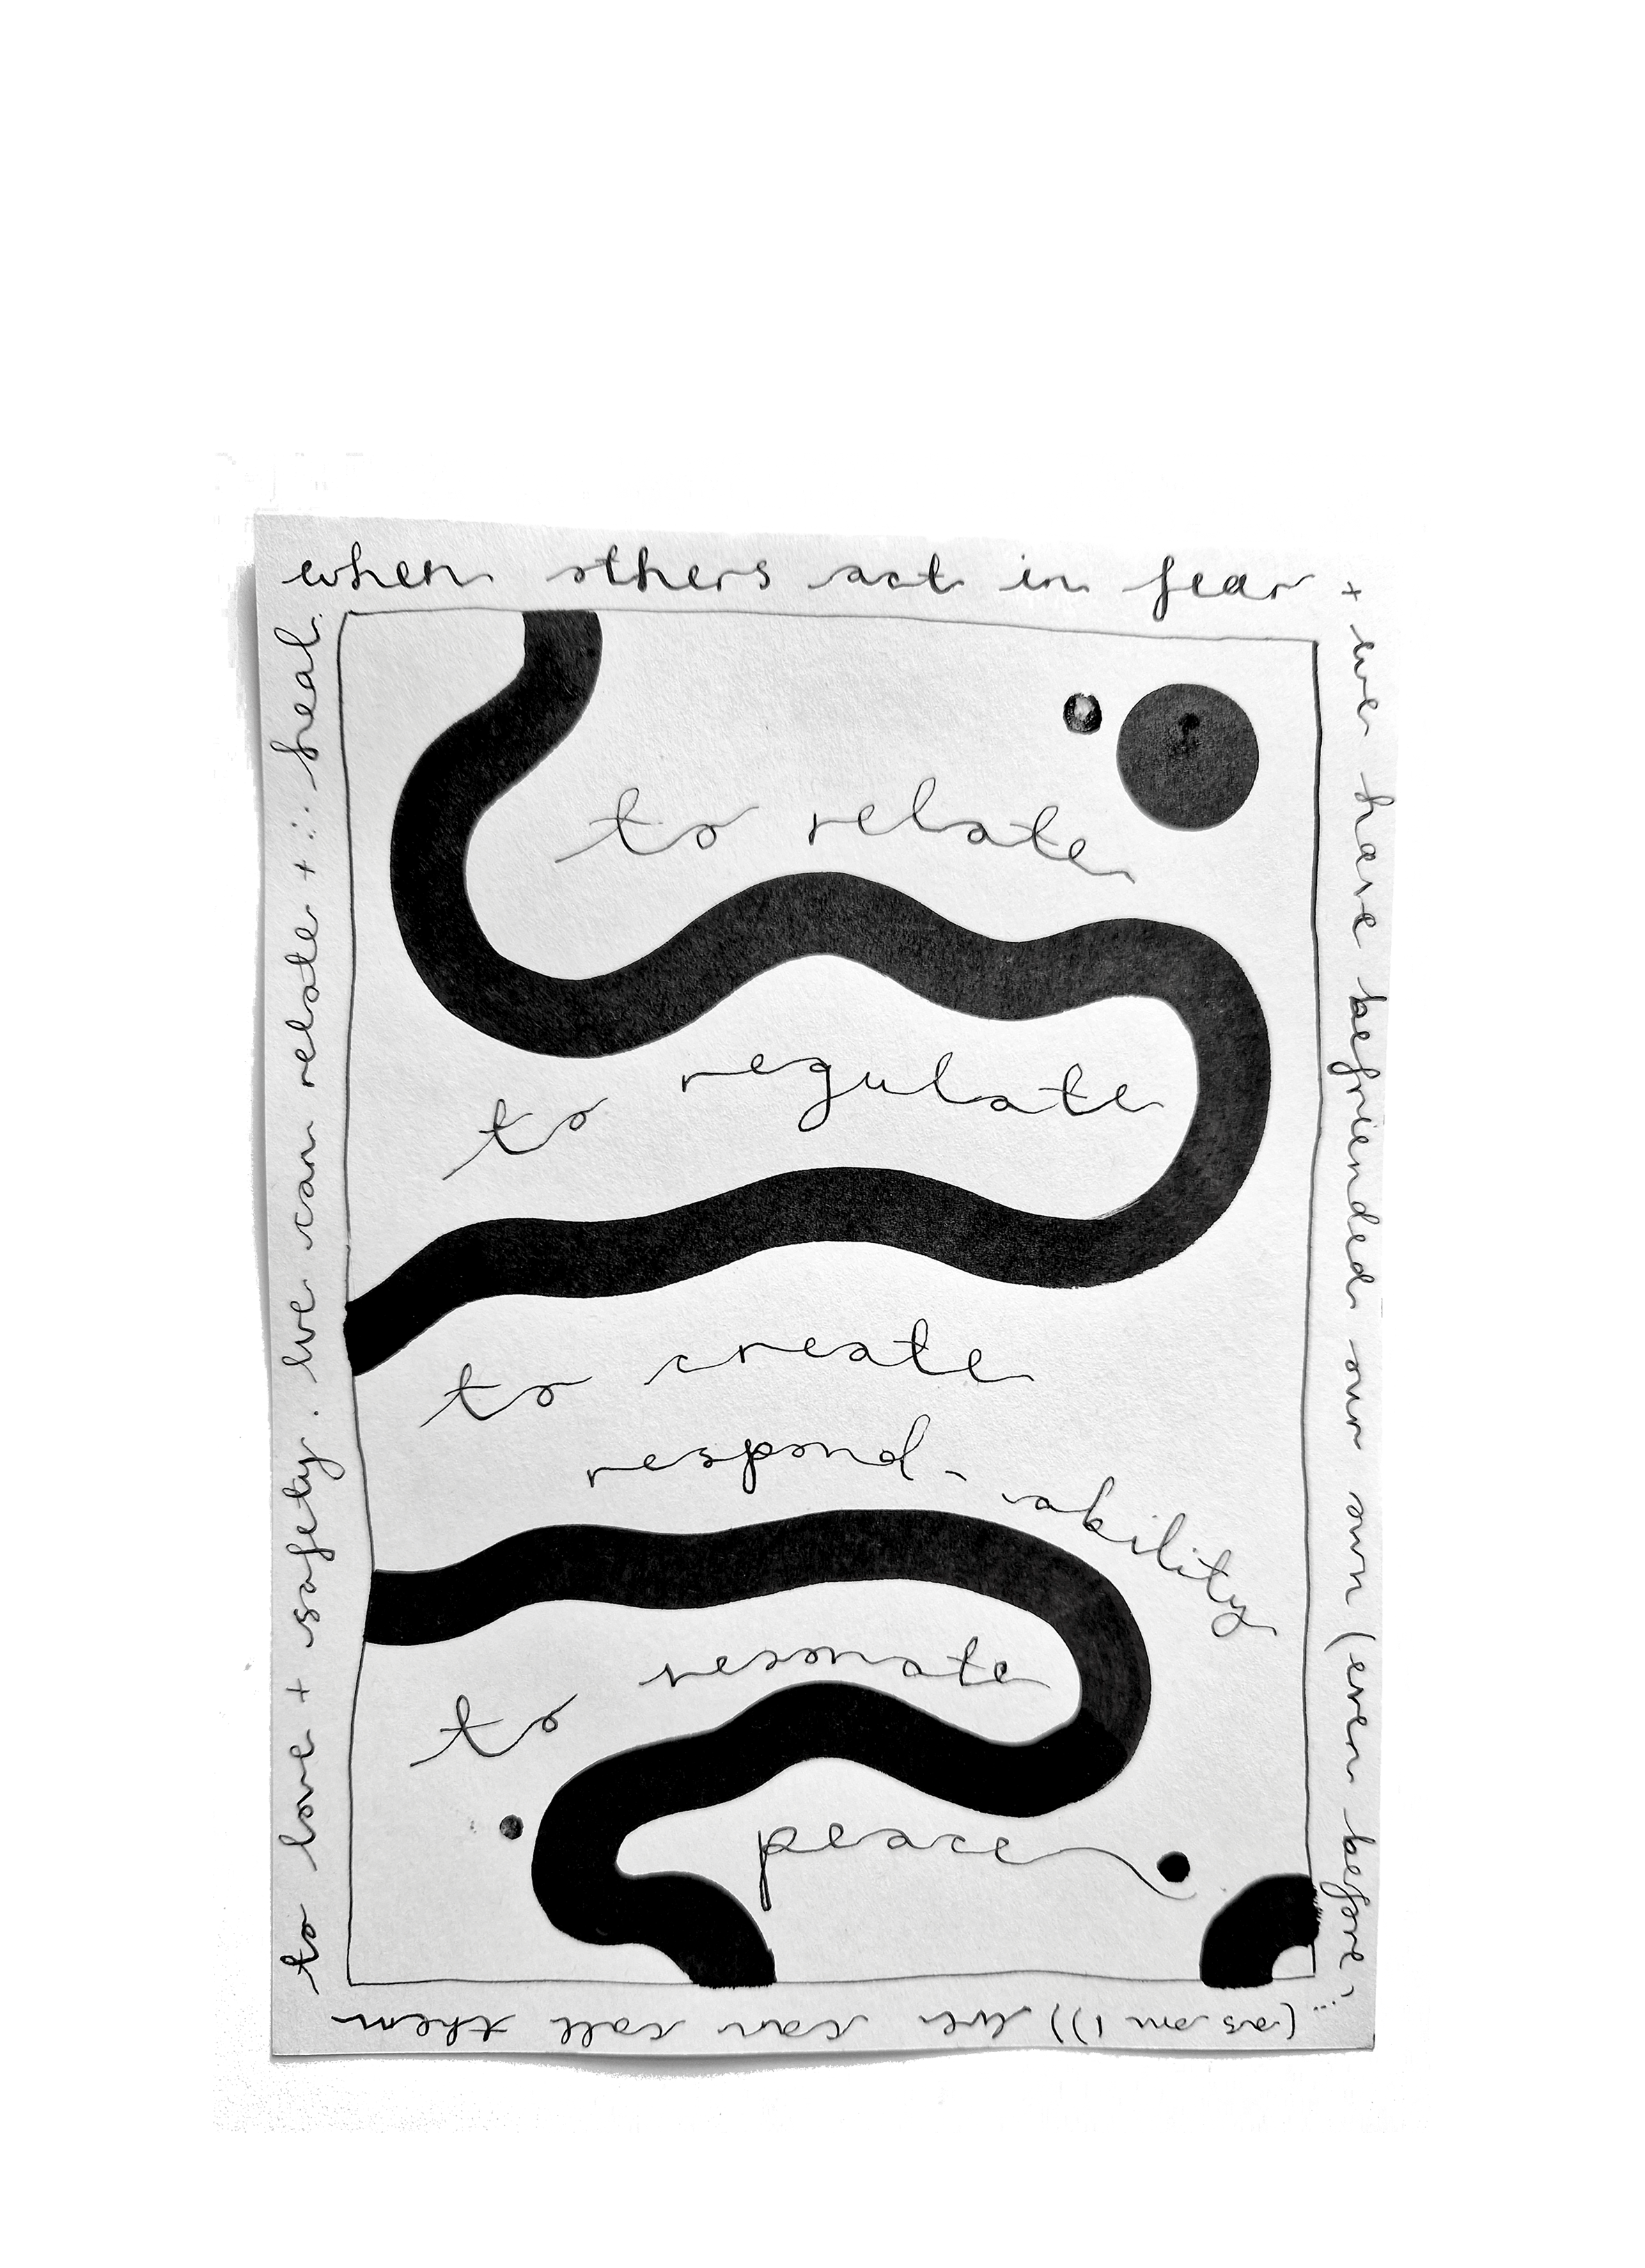 when others act in fear +
we have befriended our own (even before,
...(as am I)) we can call them
to love + safety. we can relate + ∴ heal.
to relate
to regulate
to create
respond-ability
to resonate
peace